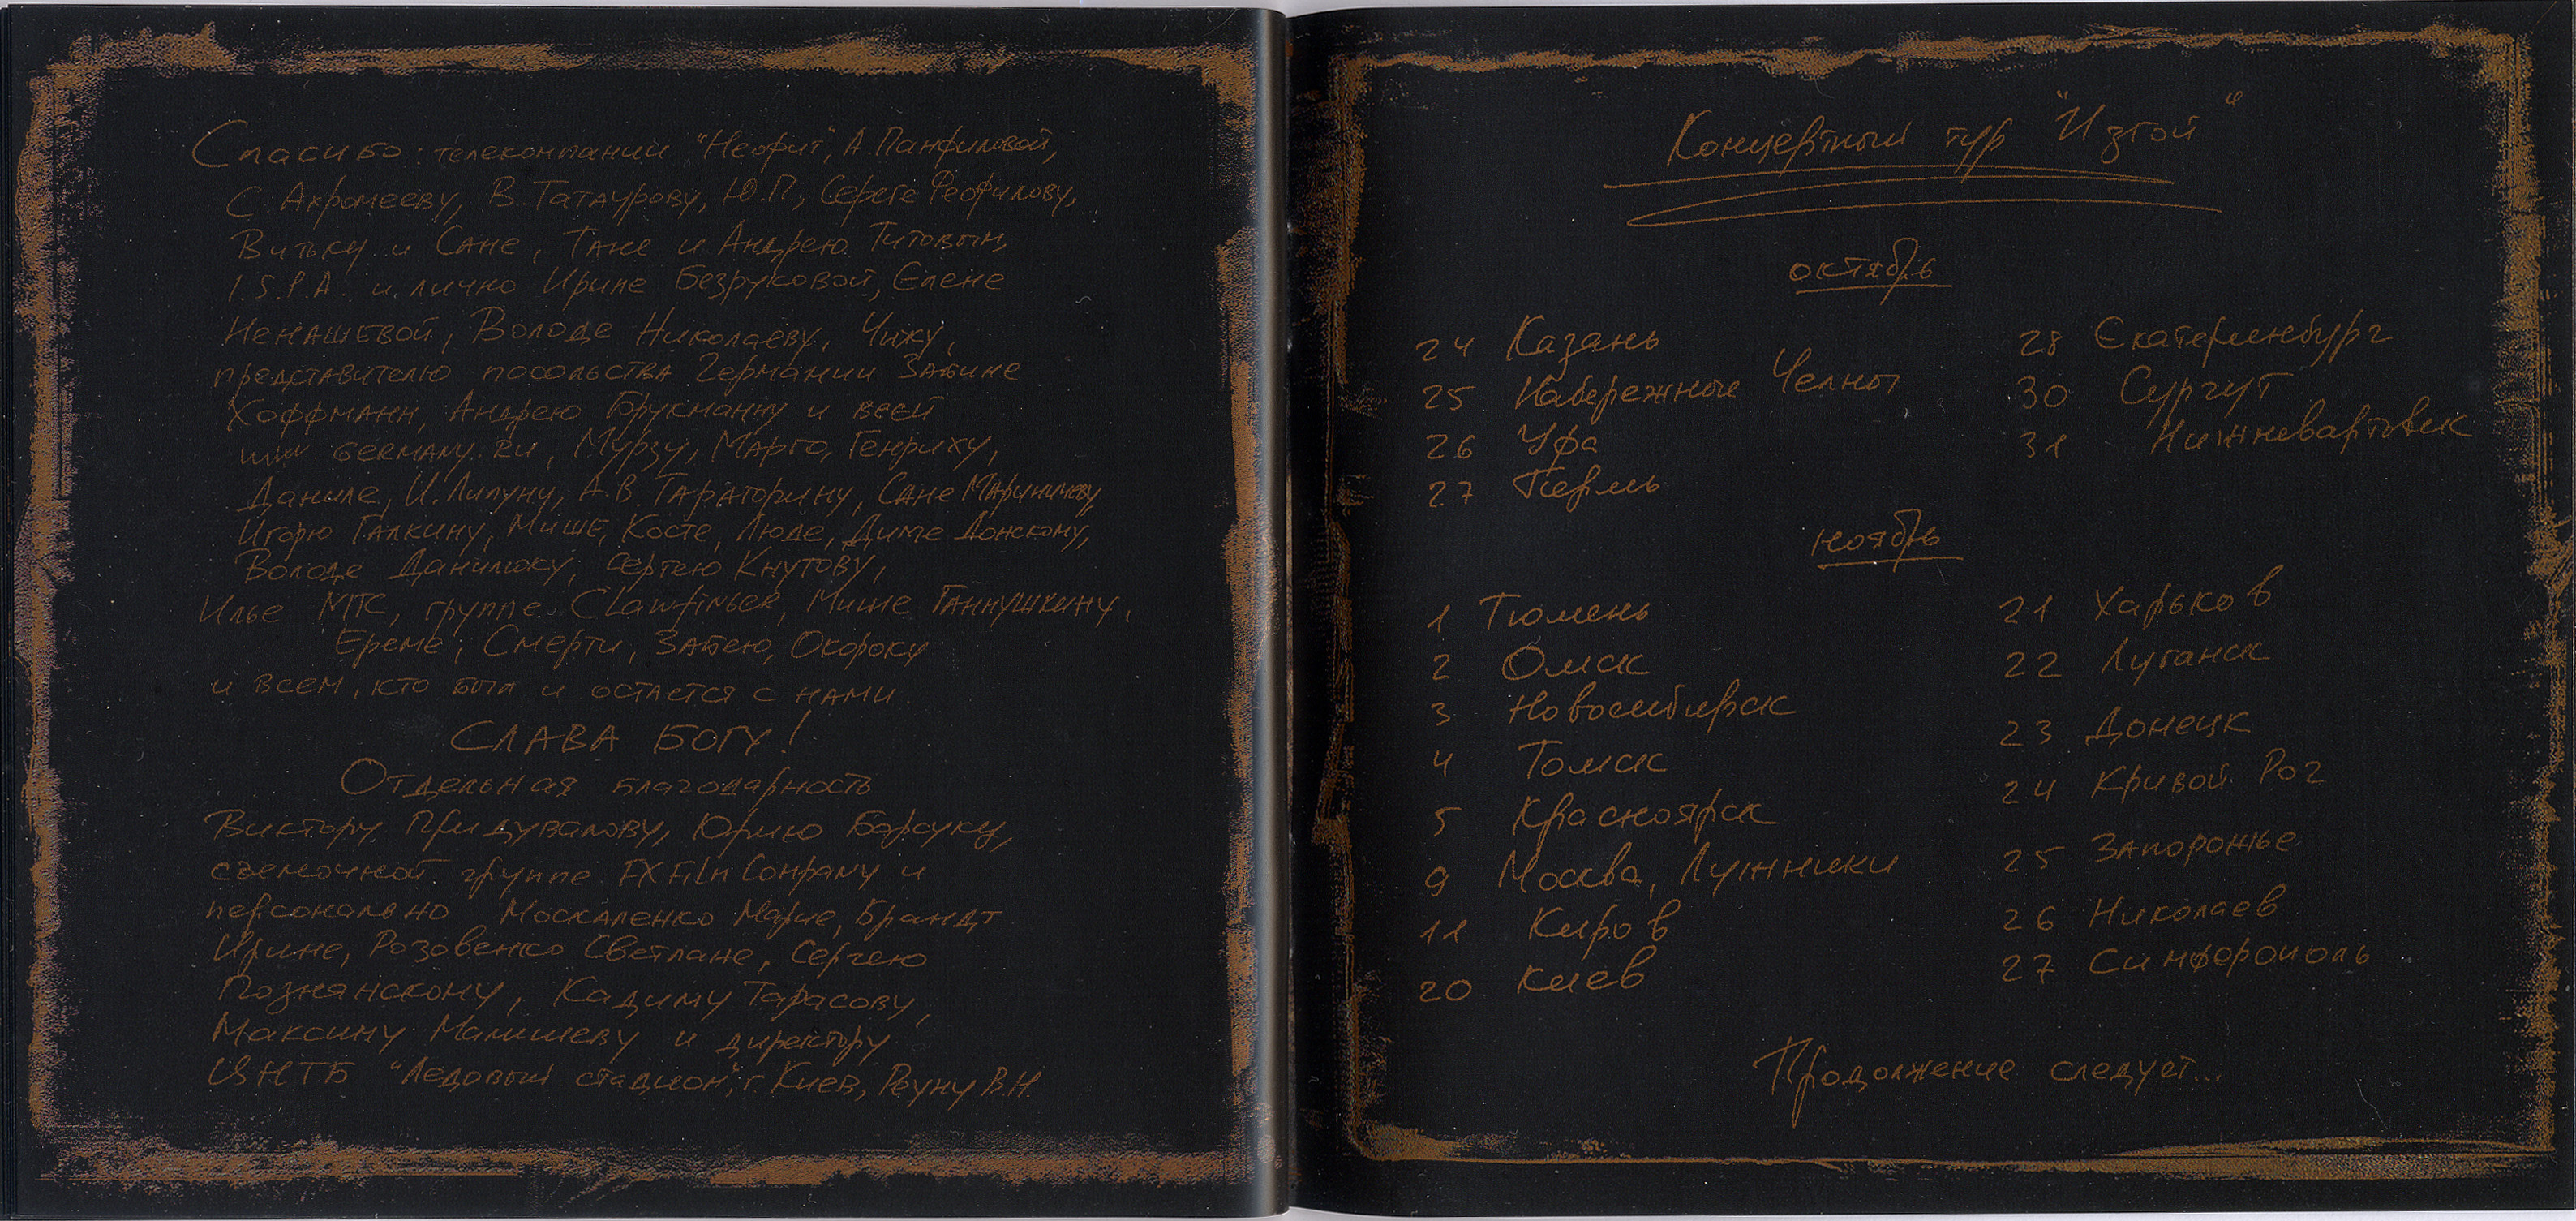 Спасибо: телекомпании "Неофит", А. Панфиловой,
С. Ахромееву, В. Татаурову, Ю.П., Сереге Феофилову,
Витьку и Сане, Тане и Андрею Титовым,
I.S.P.A. и лично Ирине Безруковой, Елене
Ненашевой, Володе Николаеву, Чижу,
представителю посольства Германии Забине
Хоффманн, Андрею Брукманну и всей
www GERMANY.RU, Мурзу, Марго, Генриху,
Даниле, И. Липуну, А.В. Тараторину, Сане Мариничеву,
Игорю Галкину, Мише, Косте, Люде, Диме Донскому,
Володе Данилюку, Сергею Кнутову,
Илье МТС, группе Clawfinger, Мише Ганнушкину,
Ереме, Смерти, Забею, Окороку
и всем, кто был и остается с нами.
СЛАВА БОГУ!
Отдельная благодарность
Виктору Придувалову, Юрию Барсуку,
съемочной группе FX Film Company и
персонально Москаленко Марие, Брандт
Ирине, Розовенко Светлане, Сергею
Познянскому, Кадиму Тарасову,
Максиму Малышеву и директору
"Ледовый стадион", г. Киев, Реуну В.Н.
Концертный тур "Изгой"
октябрь
24 Казань
25 Набережные Челны
26 Уфа
27 Пермь
28 Екатеринбург
30 Сургут
31 Нижневартовск
ноябрь
1 Тюмень
2 Омск
3 Новосибирск
4 Томск
5 Красноярск
9 Москва, Лужники
11 Киров
20 Киев
21 Харьков
22 Луганск
23 Донецк
24 Кривой Рог
25 Запорожье
26 Николаев
27 Симферополь
Продолжение следует...